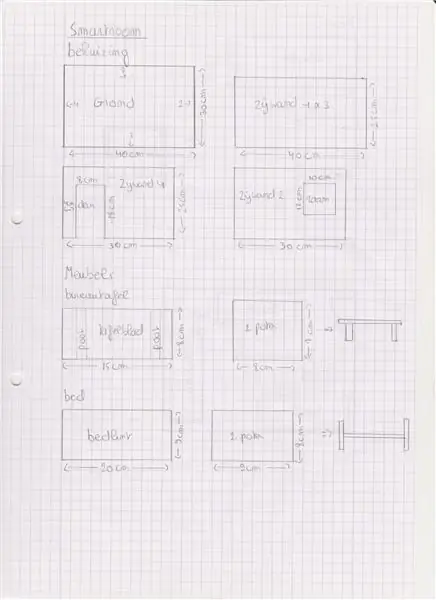 Smartroom
behuizing
Grond
30cm
40cm
Zijwand 1 x 3
25cm
40cm
8cm
Zijwand 4
deur
18cm
25cm
30cm
Zijwand 2
10cm
raam
30cm
Meubels
bureautafel
poot
tafelblad
poot
8cm
15cm
1 poot
7cm
8cm
bed
bedlat
9cm
20cm
1 poot
8cm
9cm